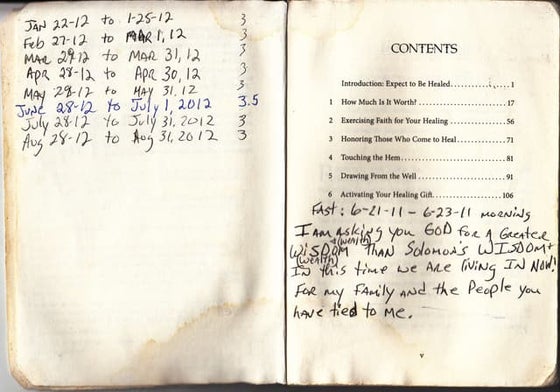 JAN 22-12 to 1-25-12 3
Feb 27-12 to MAR 1, 12 3
MAR 29 12 to MAR 31, 12 3
APR 28-12 to APR 30, 12 3
MAY 29-12 to MAY 31, 12 3
JUNE 28-12 to July 1, 2012 3.5
July 28-12 to July 31, 2012 3
Aug 28-12 to Aug 31, 2012 3
CONTENTS
Introduction: Expect to Be Healed 1
1 How Much Is It Worth? 17
2 Exercising Faith for Your Healing 56
3 Honoring Those Who Come to Heal 71
4 Touching the Hem 81
5 Drawing From the Well 91
6 Activating Your Healing Gift 106
FAST: 6-21-11 - 6-23-11 MORNING
I AM asking you GOD FOR A GREATER
+(WEALTH)
WISDOM THAN Solomon's WISDOM+
(WEALTH)
IN this time we ARE living IN NOW!
FOR my FAMily AND the People you
have tied to me.
v